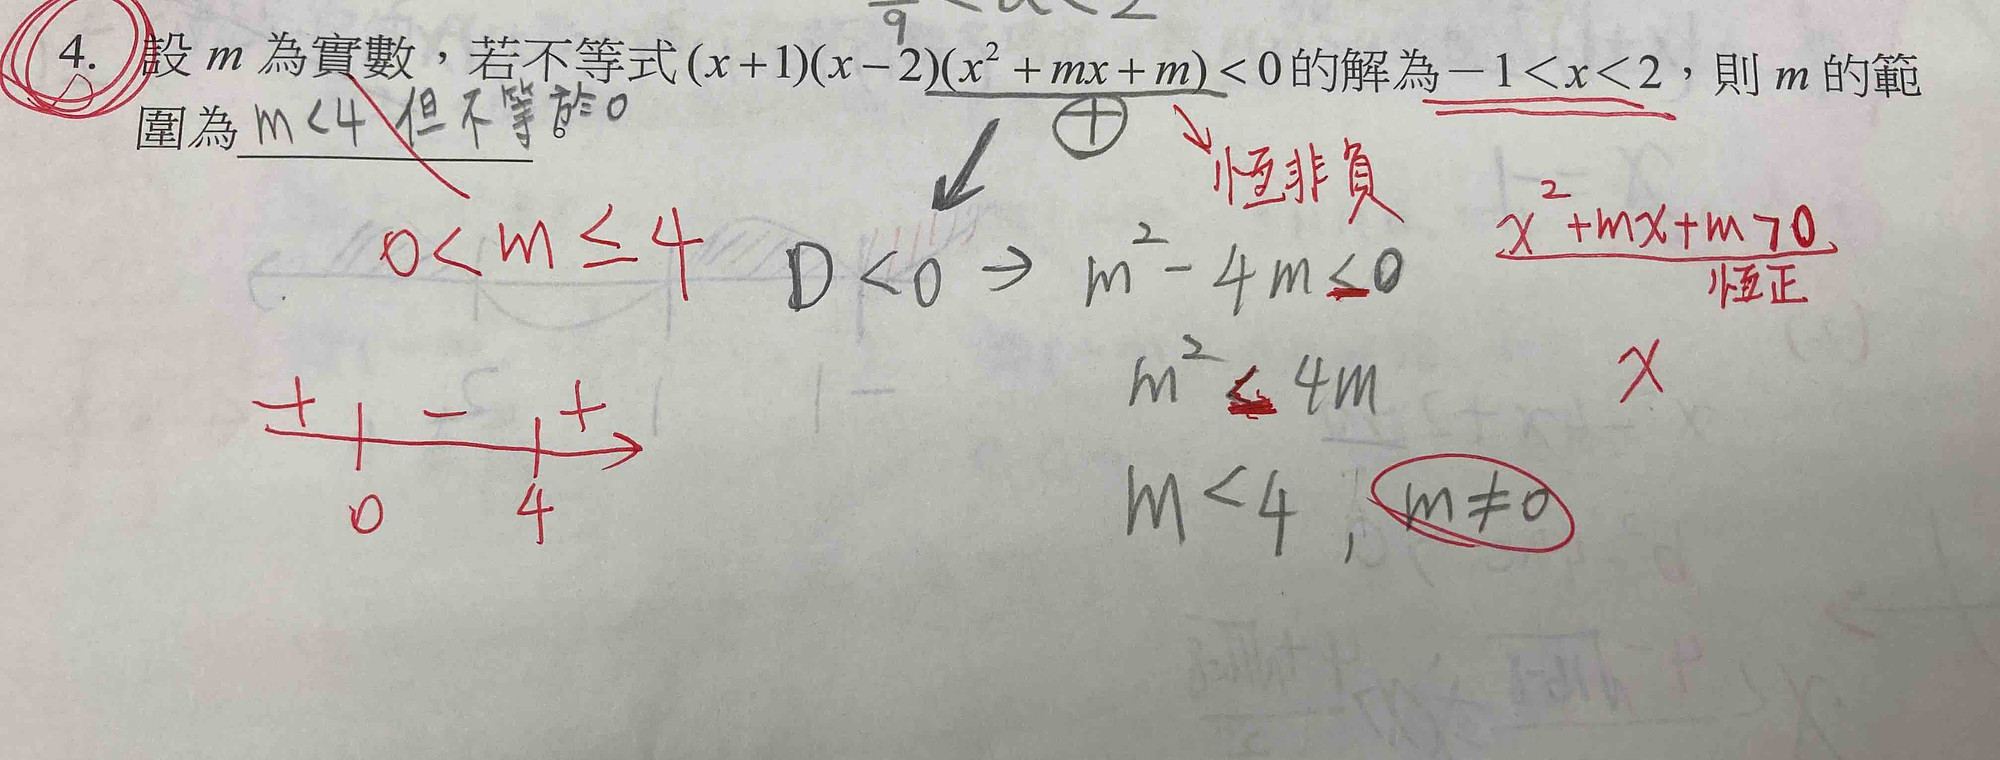 4. 設 m 為實數，若不等式 (x+1)(x−2)(x²+mx+m)<0 的解為 −1<x<2，則 m 的範
圍為 m<4 但不等於0 。
⊕
恆非負
0<m≤4
D<0 → m²−4m≤0
x²+mx+m>0
恆正
m²≤4m
x
+ − +
0 4
m<4, m≠0